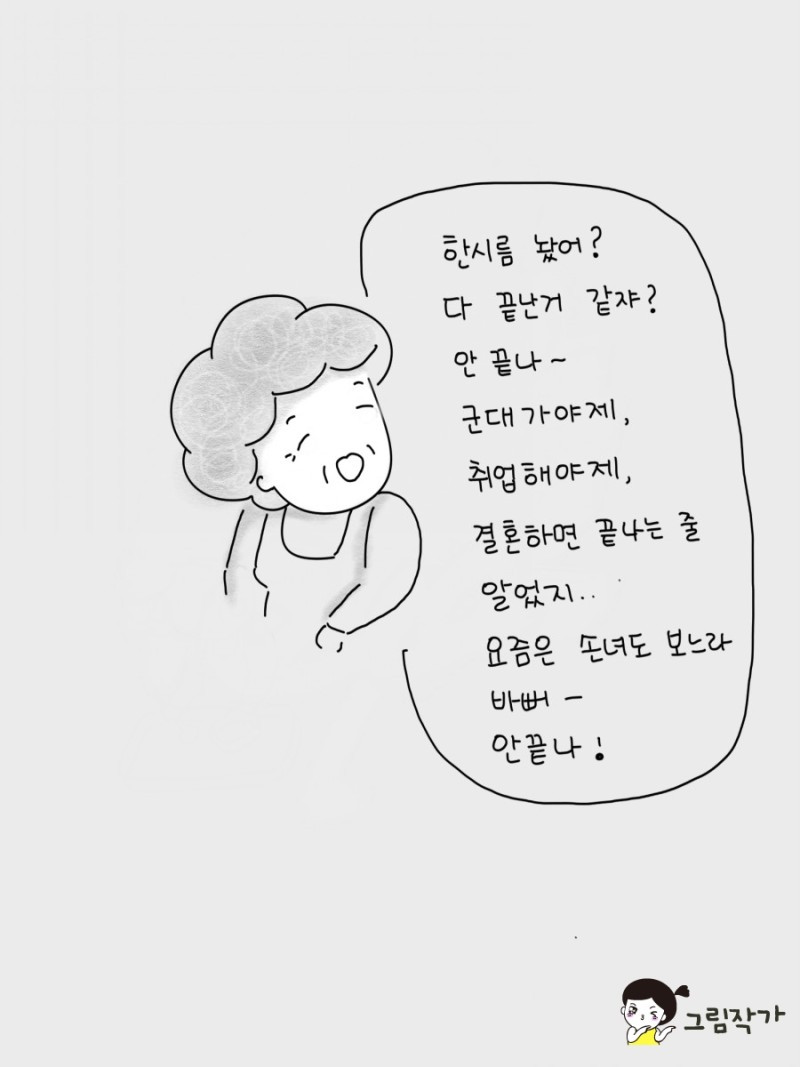 한시름 놨어?
다 끝난거 같쟈?
안 끝나~
군대가야제,
취업해야제,
결혼하면 끝나는 줄
알었지..
요즘은 손녀도 보느라
바뻐 -
안끝나!
그림작가